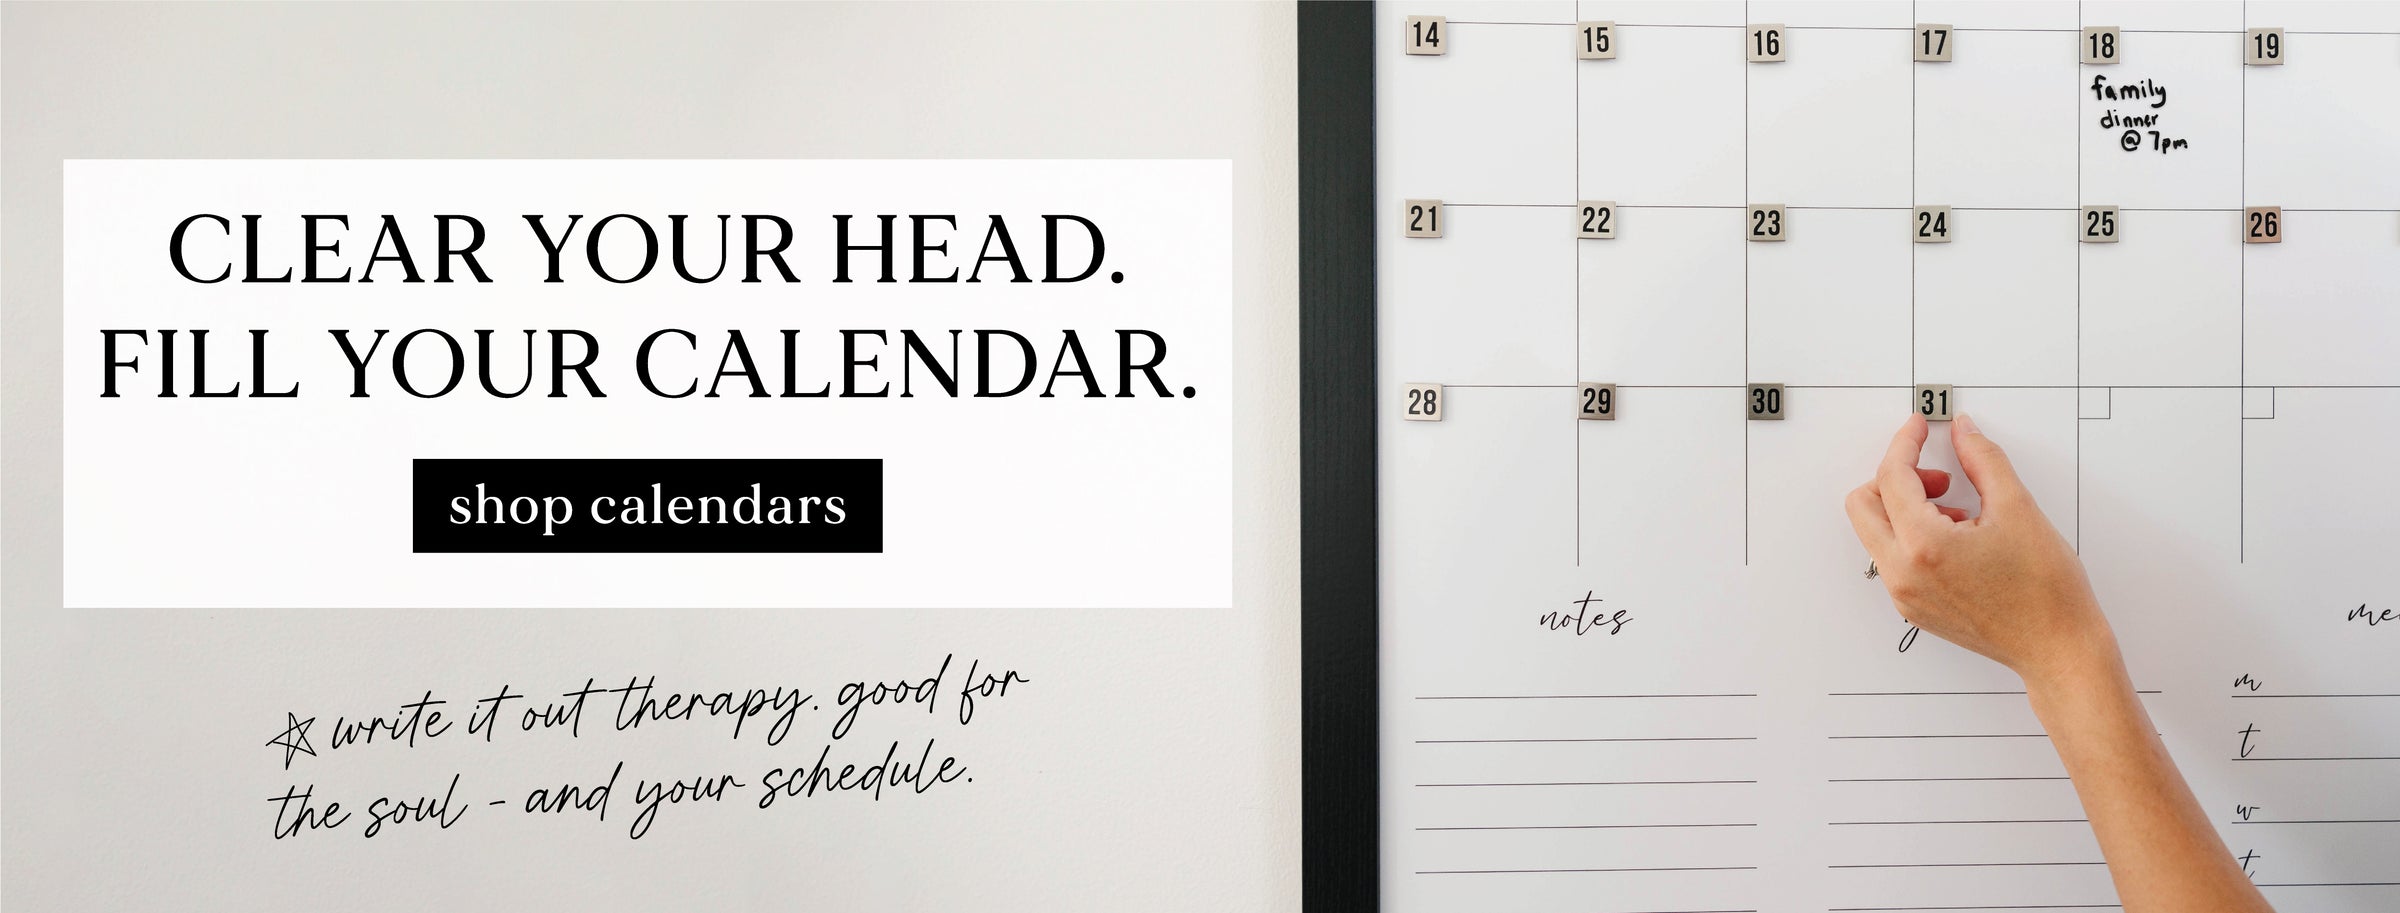 CLEAR YOUR HEAD.
FILL YOUR CALENDAR.
shop calendars
write it out therapy. good for
the soul - and your schedule.
14 15 16 17 18 19
family
dinner
@ 7pm
21 22 23 24 25 26
28 29 30 31
notes
m
t
w
t